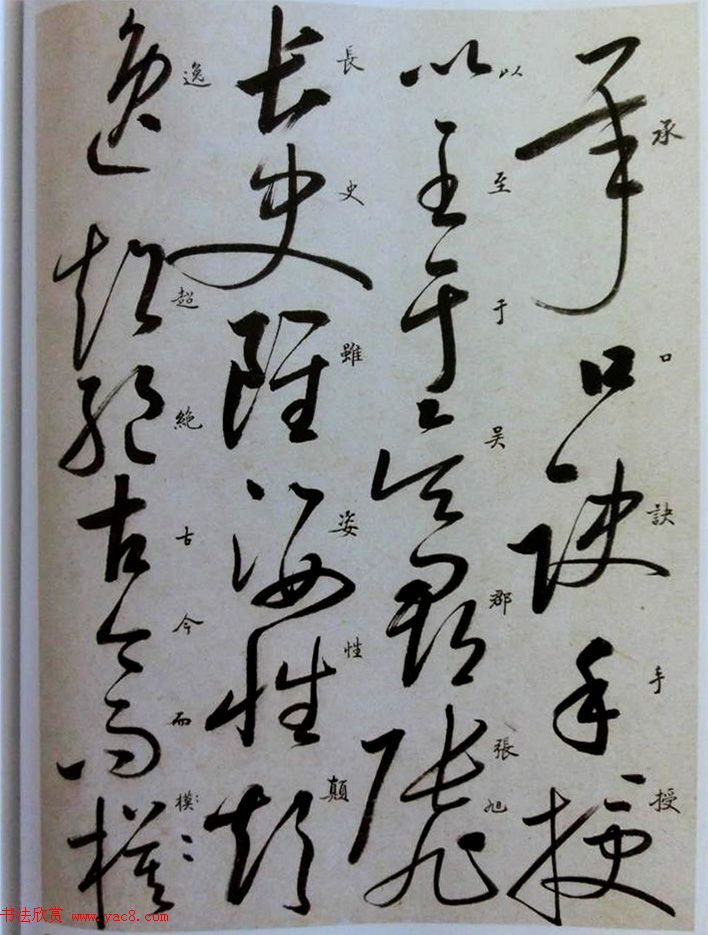 承口訣手授
以至于吴郡張旭
長史雖姿性顛
逸超絕古今而模
书法欣赏 www.yac8.com